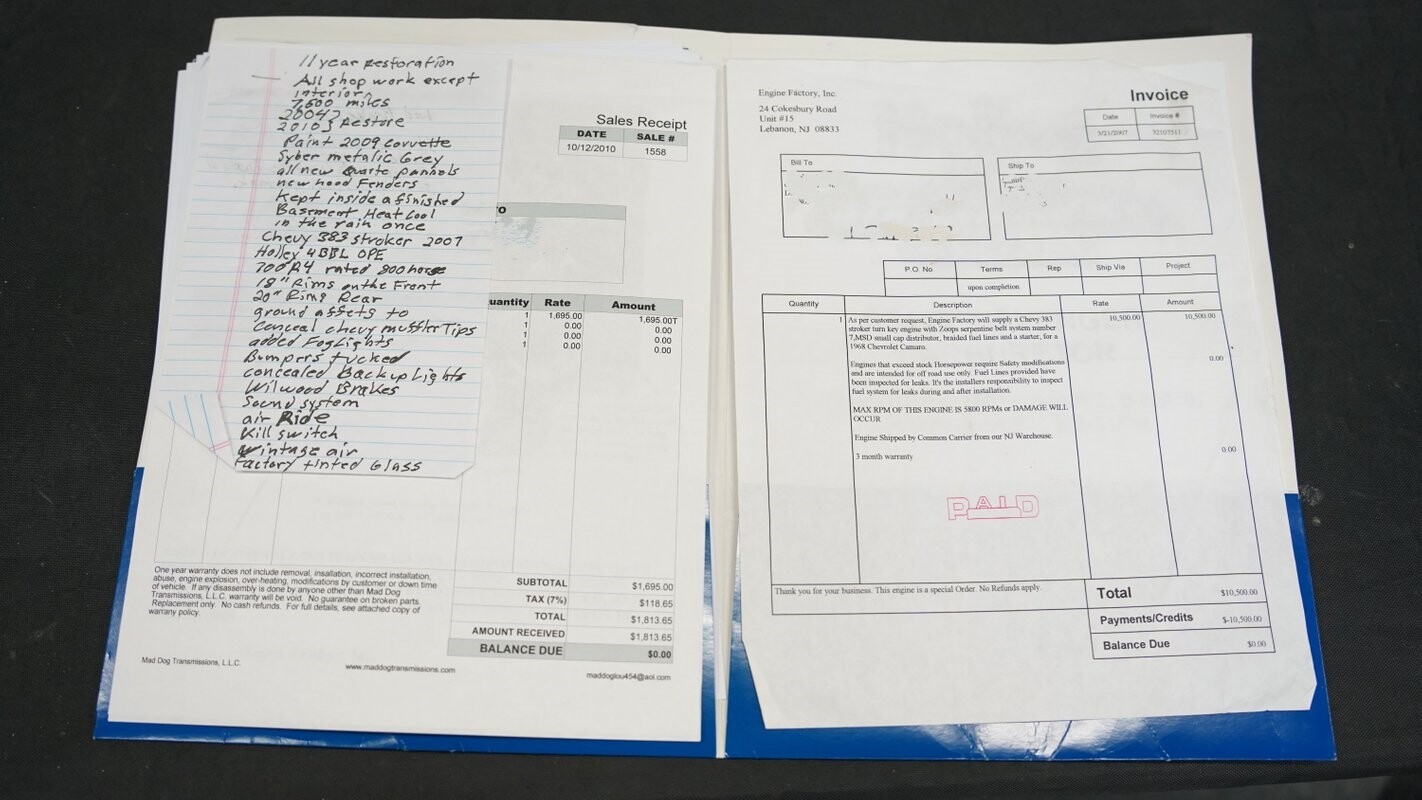 11 year restoration
All shop work except
interior
7,600 miles
2004?
2010} Restore
Paint 2009 corvette
Syber metalic Grey
all new Quarte pannels
new hood Fenders
Kept inside a finished
Basement Heat Cool
in the rain once
Chevy 383 stroker 2007
Holley 4BBL OPE
700R4 rated 800 horse
18" Rims on the Front
20" Rims Rear
ground affets to
Conceal chevy muffler Tips
added FogLights
Bumpers tucked
concealed Backup Lights
Wilwood Brakes
Sound system
air Ride
Kill switch
vintage air
Factory tinted Glass
Sales Receipt
DATE SALE #
10/12/2010 1558
TO
uantity Rate Amount
1 1,695.00 1,695.00T
1 0.00 0.00
1 0.00 0.00
1 0.00 0.00
One year warranty does not include removal, insallation, incorrect installation,
abuse, engine explosion, over-heating, modifications by customer or down time
of vehicle. If any disassembly is done by anyone other than Mad Dog
Transmissions, L.L.C. warranty will be void. No guarantee on broken parts.
Replacement only. No cash refunds. For full details, see attached copy of
warrany policy.
SUBTOTAL $1,695.00
TAX (7%) $118.65
TOTAL $1,813.65
AMOUNT RECEIVED $1,813.65
BALANCE DUE $0.00
Mad Dog Transmissions, L.L.C. www.maddogtransmissions.com maddoglou454@aol.com
Engine Factory, Inc.
24 Cokesbury Road
Unit #15
Lebanon, NJ 08833
Invoice
Date Invoice #
3/21/2007 32107511
Bill To
Ship To
P.O. No. Terms Rep Ship Via Project
upon completion
Quantity Description Rate Amount
1 As per customer request, Engine Factory will supply a Chevy 383 10,500.00 10,500.00
stroker turn key engine with Zoops serpentine belt system number
7,MSD small cap distributor, braided fuel lines and a starter, for a
1968 Chevrolet Camaro.
0.00
Engines that exceed stock Horsepower require Safety modifications
and are intended for off road use only. Fuel Lines provided have
been inspected for leaks. It's the installers responsibility to inspect
fuel system for leaks during and after installation.
MAX RPM OF THIS ENGINE IS 5800 RPMs or DAMAGE WILL
OCCUR
Engine Shipped by Common Carrier from our NJ Warehouse.
0.00
3 month warranty
PAID
Thank you for your business. This engine is a special Order. No Refunds apply.
Total $10,500.00
Payments/Credits $-10,500.00
Balance Due $0.00